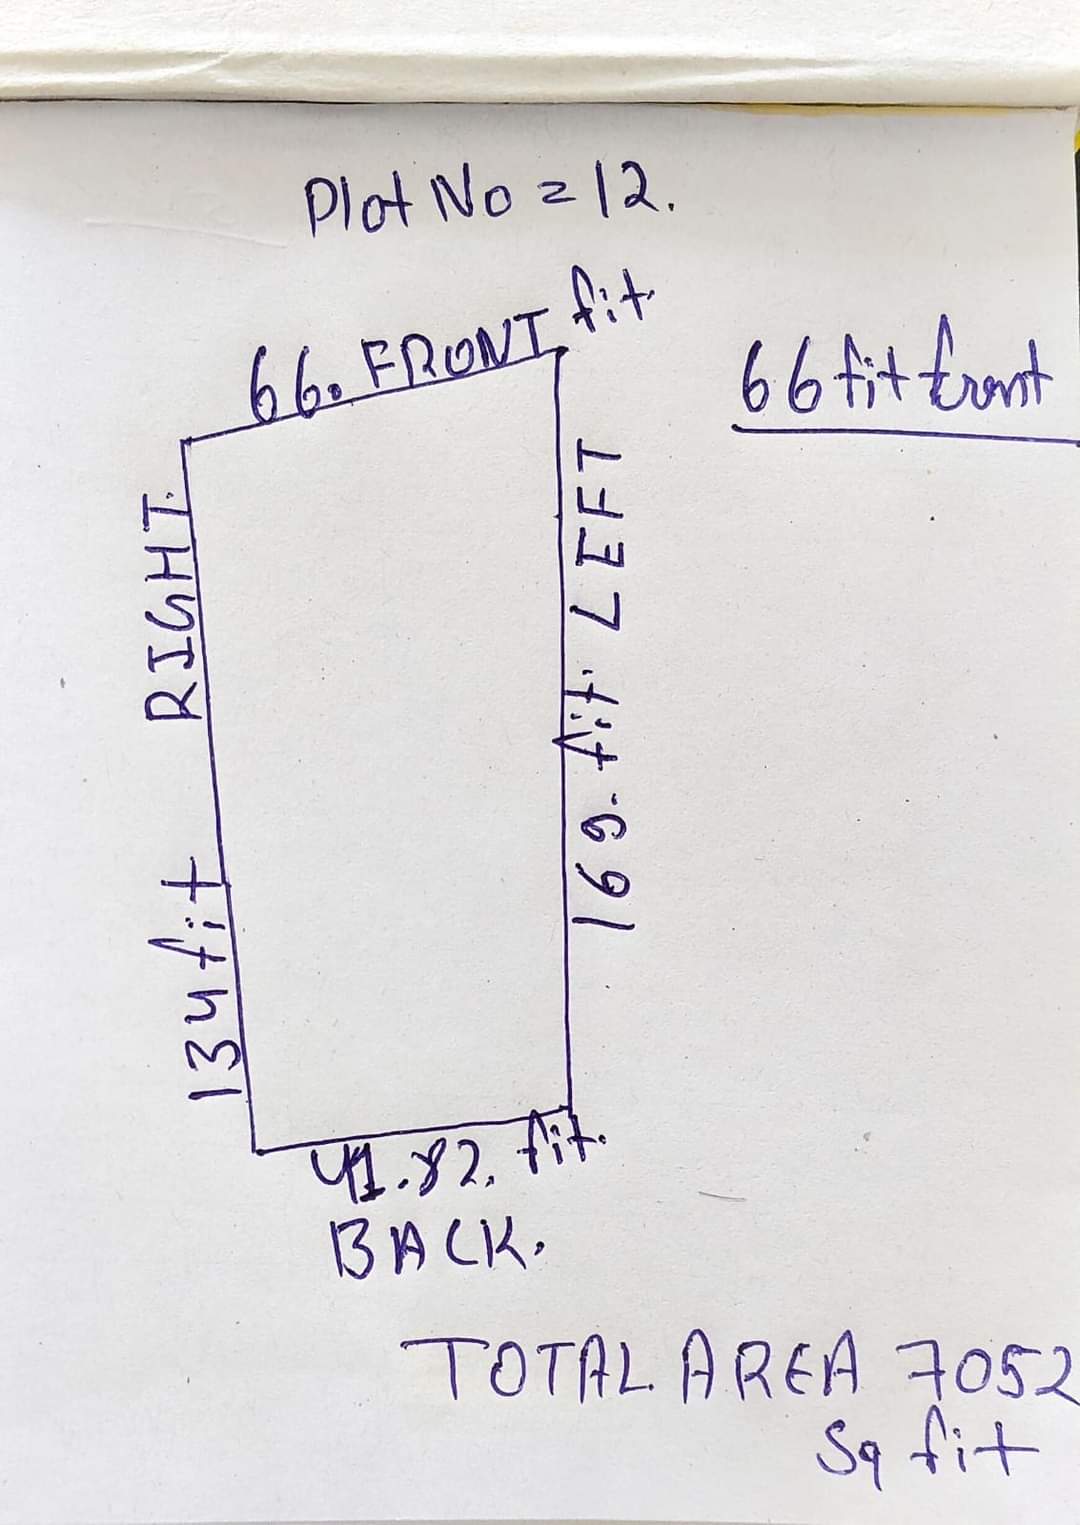 Plot No = 12.
66. FRONT fit.
66 fit front
RIGHT.
134 fit
169. fit LEFT
41.82. fit.
BACK.
TOTAL AREA 7052
Sq fit